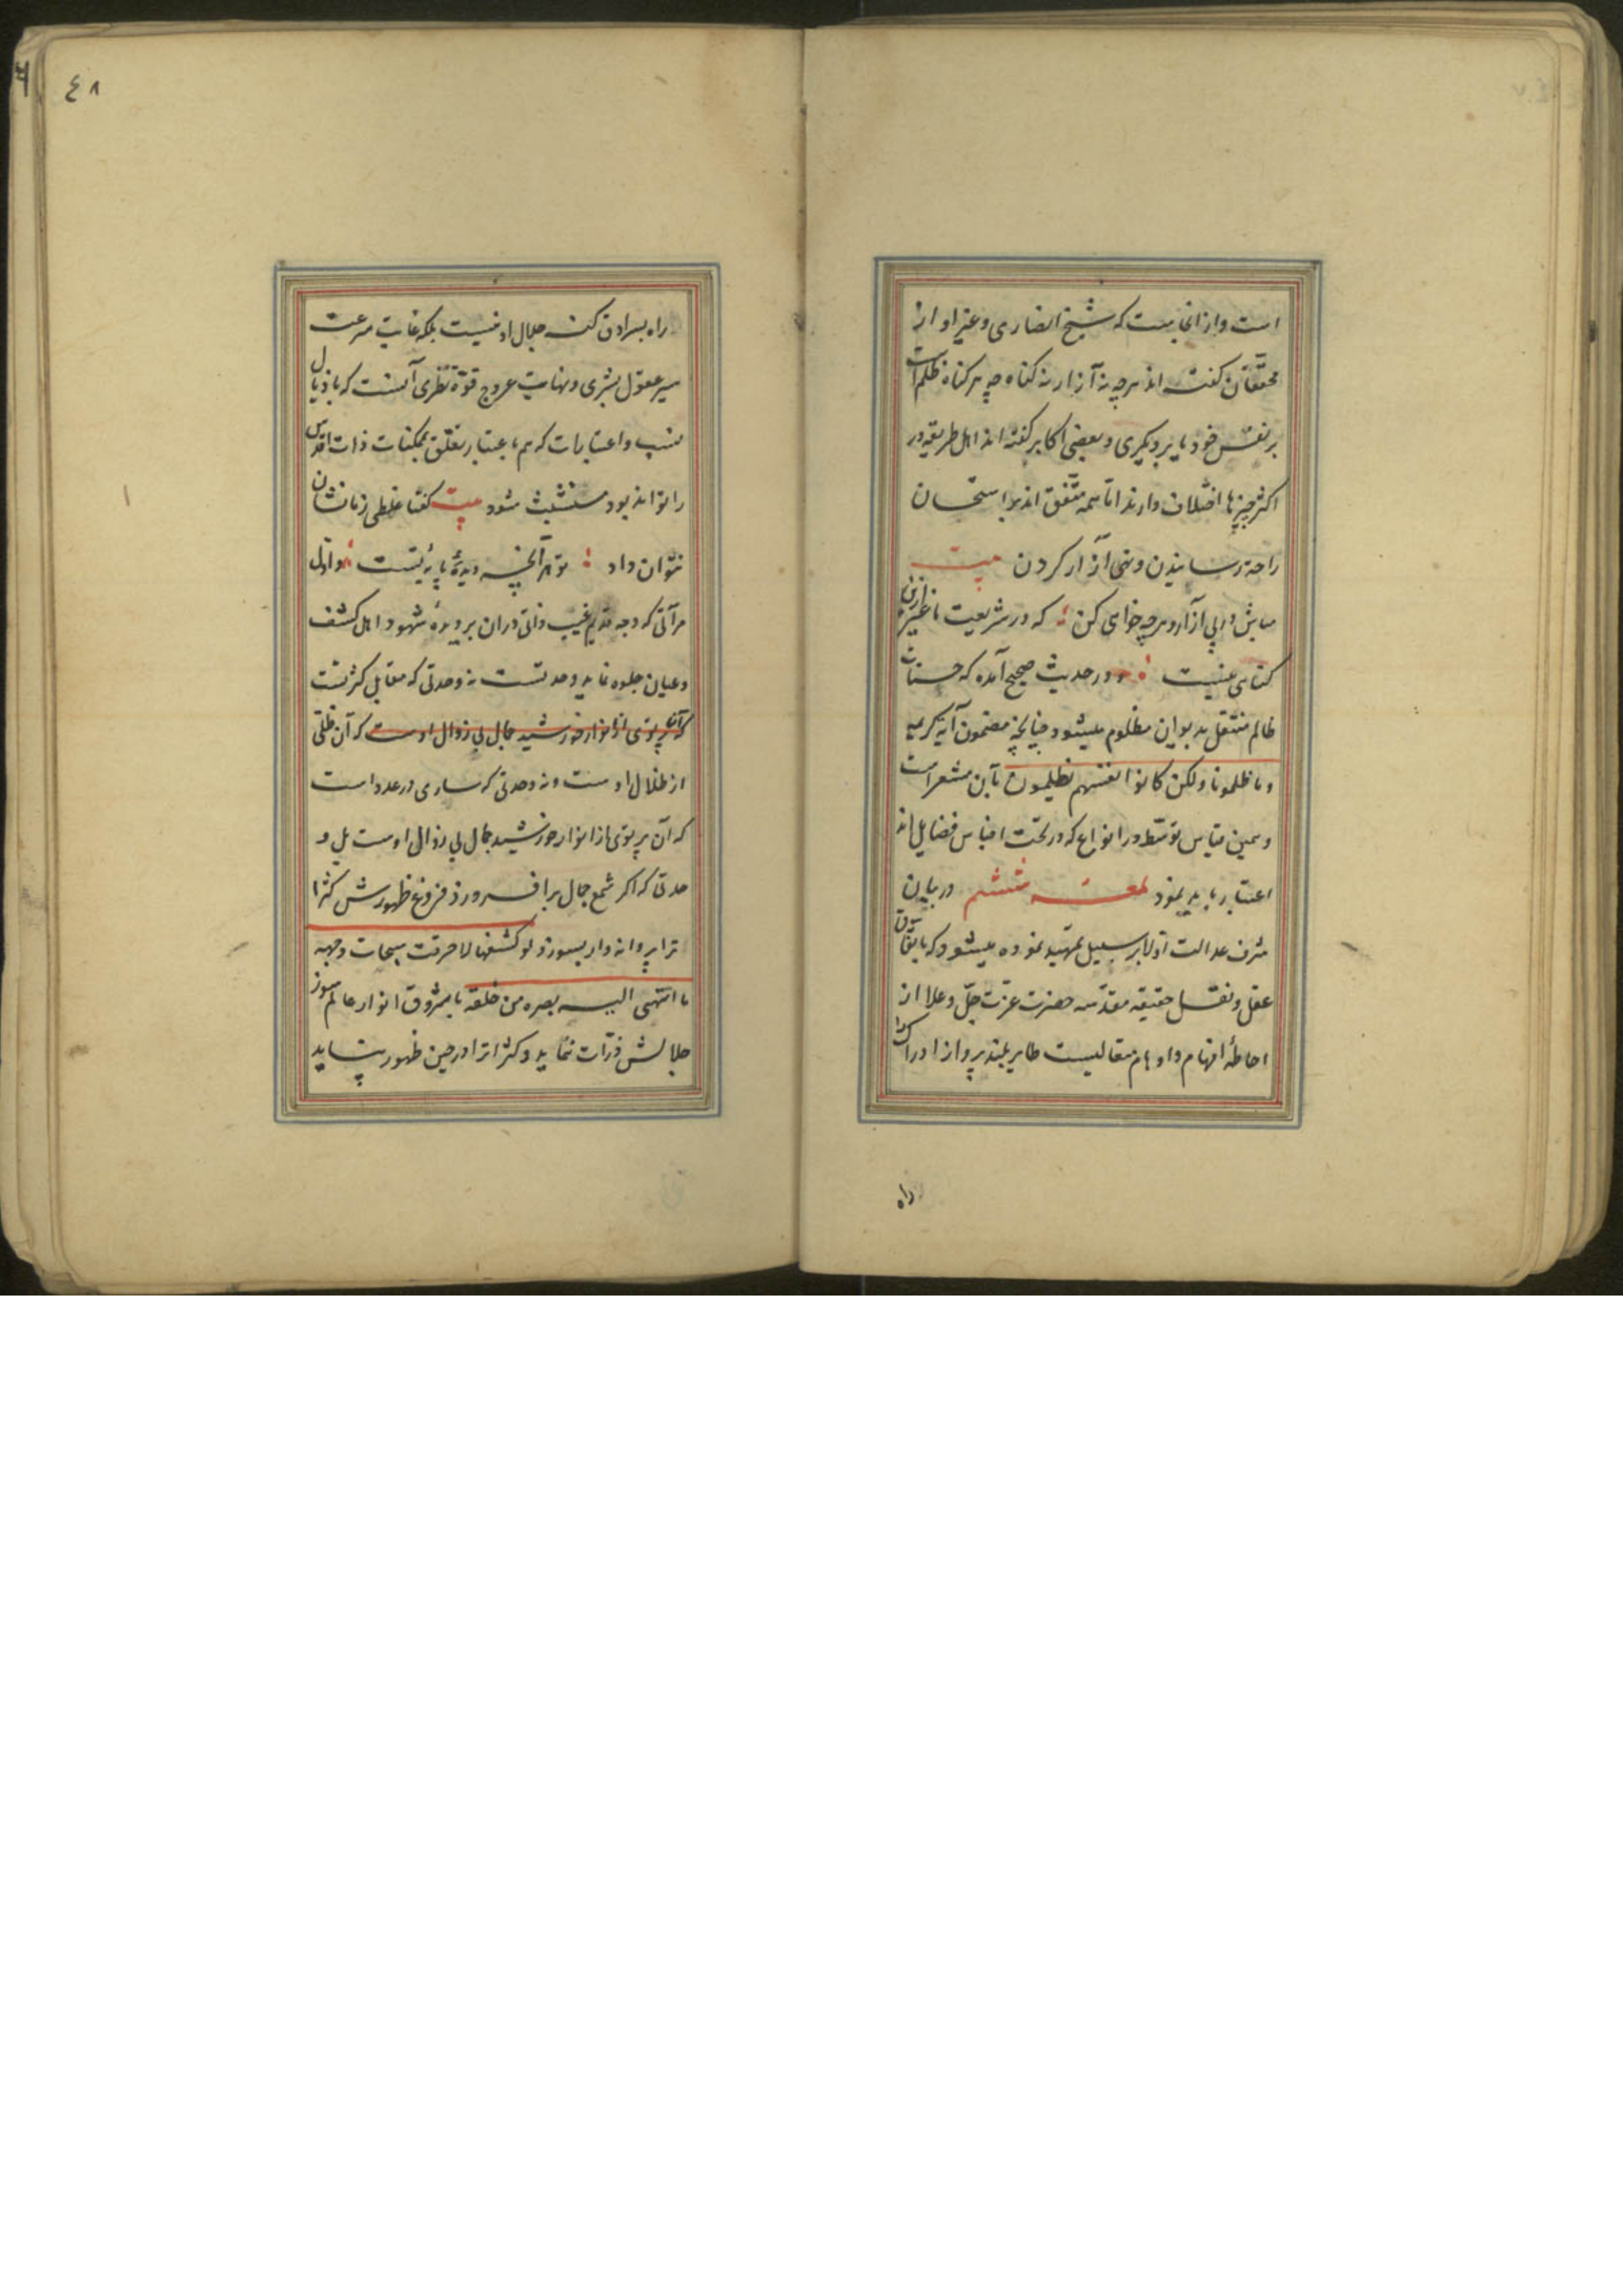 است و از انجاست که شیخ انصاری و غیر او از
محققان گفته اند هرچه نه آزار نه گناه چه هر گناه ظلم است
بر نفس خود یا بر دیگری و بعضی اکابر گفته اند اهل طریقه در
اکثر چیزها اختلاف دارند اما همه متفق اند بر استحسان
راحة رسانیدن و نهی آزار کردن بیت
مباش در پی آزار و هرچه خواهی کن که در شریعت ما غیر ازین
گناهی نیست و در حدیث صحیح آمده که حسنات
ظالم منتقل به دیوان مظلوم میشود چنانچه مضمون آیه کریمه
و ما ظلمونا ولکن کانوا انفسهم یظلمون بآن مشعر است
و همین قیاس توسط در انواع که در تحت اجناس فضایل اند
اعتبار باید نمود لمعه ششم در بیان
شرف عدالت اولا بر سبیل تمهید نموده میشود که باتفاق
عقل و نقل حقیقه مقدسه حضرت عزت جل و علا از
احاطهٔ افهام و اوهام متعالیست طایر بلند پرواز ادراک را
راه
٤٨
راه بسرادق کنه جلال او نیست بلکه غایت سرعت
سیر عقول بشری و نهایت عروج قوة نظری آنست که باذیال
نسب و اعتبارات که هم باعتبار تعلق بممکنات ذات اقدس
را تواند بود متشبث شود بیت کفتا غلطی ز ما نشان
نتوان داد تو هر آنچه دیدهٔ پایهٔ تست و اول
مرآتی که وجه قدیم غیب ذاتی در آن بر دیدهٔ شهود اهل کشف
و عیان جلوه نماید وحدتست نه وحدتی که مقابل کثرتست
که آن پرتوی از انوار خورشید جمال بی زوال اوست که آن ظلی
از ظلال اوست و نه وحدتی که ساری در عدد است
که آن پرتوی از انوار خورشید جمال بی زوال اوست بل و
حدتی که اگر شمع جمال بر افروزد فروغ ظهورش کثرا
ترا پروانه وار بسوزد لو کشفها لاحرقت سبحات وجهه
ما انتهی الیه بصره من خلقه با شروق انوار عالم سوز
جلالش ذرات نماید و کثرات را در حین ظهور نشاید